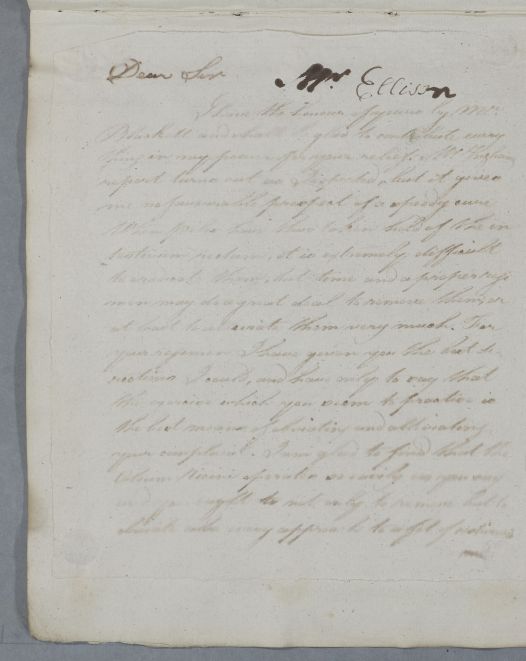 Dear Sir
Mr. Ellison
I have the honour of yours by Mrs.
and shall be glad to contribute every
thing in my power for your relief. Mr.
report turns out as I expected, but it gives
me no favourable prospect of a speedy cure
When piles have thus taken hold of the in
testinum rectum, it is extremely difficult
to eradicate them, but time and a proper regi
men may do a great deal to remove them, or
at least to alleviate them very much. For
your regimen I have given you the best di
rections I could, and have only to say that
the exercise which you seem to practise is
the best means of obviating and alleviating
your complaint. I am glad to find that the
Oleum Ricini operates so easily in you
and you ought to not only to remove but to
obviate every approach to a fit of